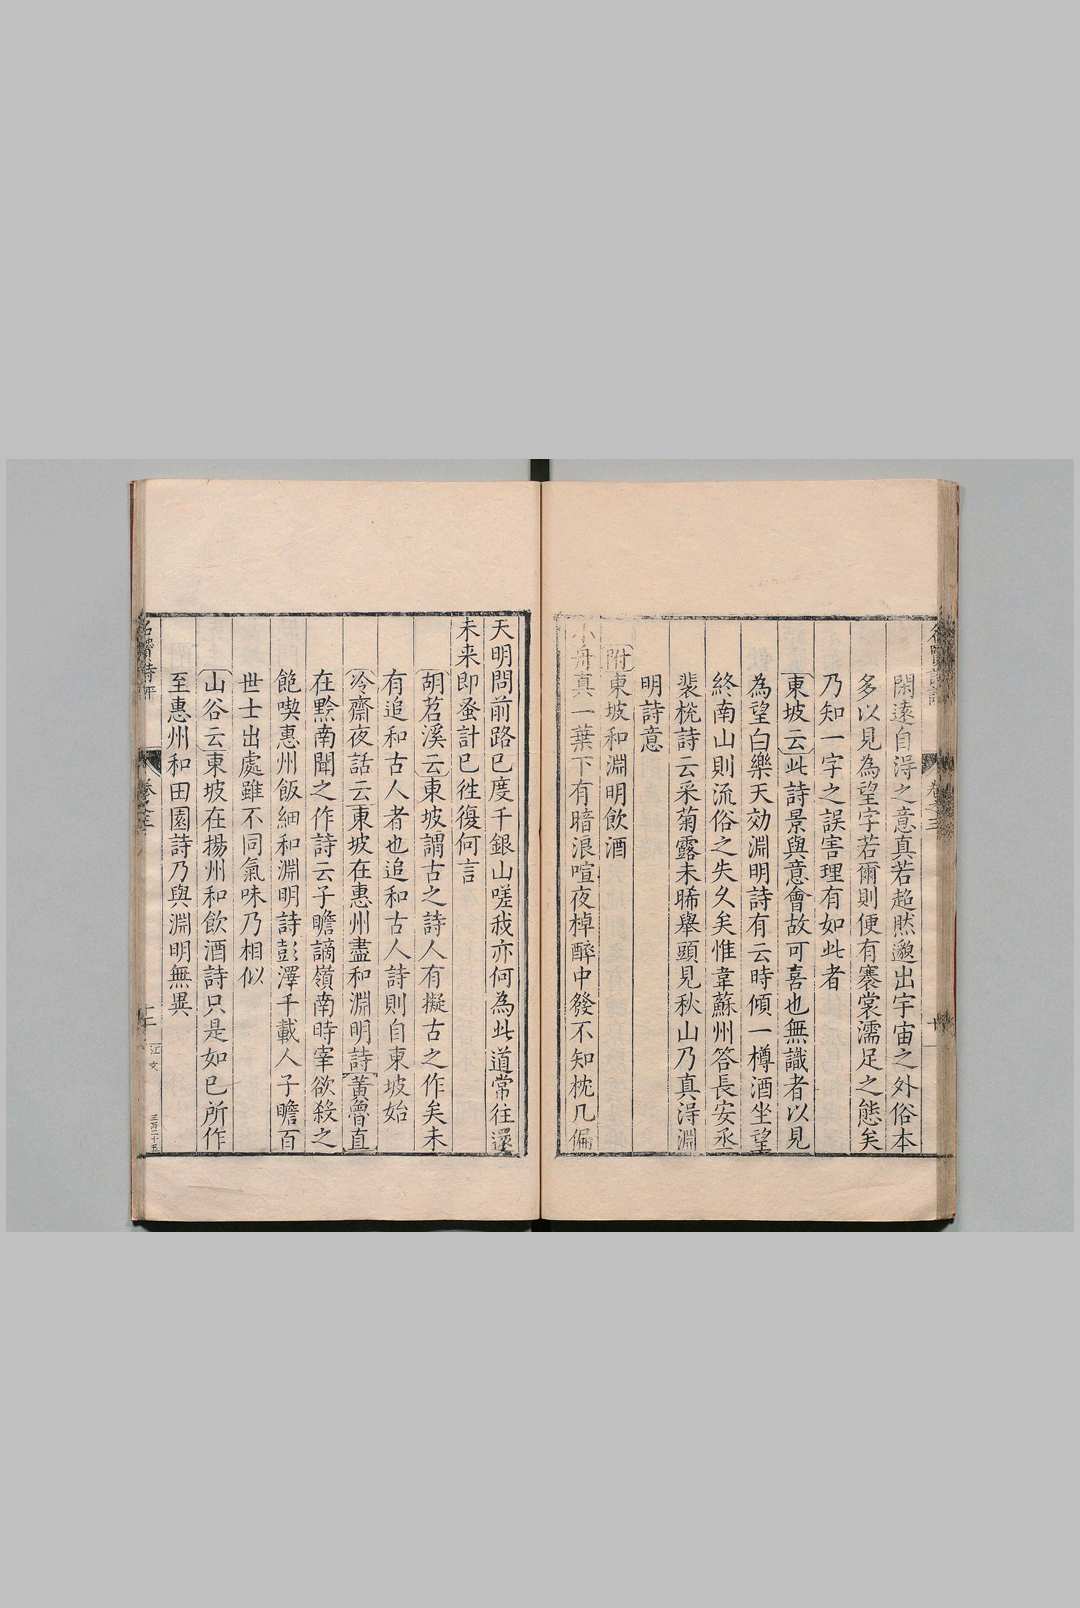 閑遠自淂之意真若超然邈出宇宙之外俗本
多以見為望字若爾則便有褰裳濡足之態矣
乃知一字之誤害理有如此者
東坡云此詩景與意會故可喜也無識者以見
為望白樂天効淵明詩有云時傾一樽酒坐望
終南山則流俗之失久矣惟韋蘇州答長安丞
裴梲詩云采菊露未晞舉頭見秋山乃真淂淵
明詩意
附東坡和淵明飲酒
小舟真一葉下有暗浪喧夜棹醉中發不知枕几偏
天明問前路已度千銀山嗟我亦何為此道常往還
未来即蚤計已徃復何言
胡苕溪云東坡謂古之詩人有擬古之作矣未
有追和古人者也追和古人詩則自東坡始
冷齋夜話云東坡在惠州盡和淵明詩黃魯直
在黔南聞之作詩云子瞻謫嶺南時宰欲殺之
飽喫惠州飯細和淵明詩彭澤千載人子瞻百
世士出處雖不同氣味乃相似
山谷云東坡在揚州和飲酒詩只是如已所作
至惠州和田園詩乃與淵明無異
名賢詩評
卷之三